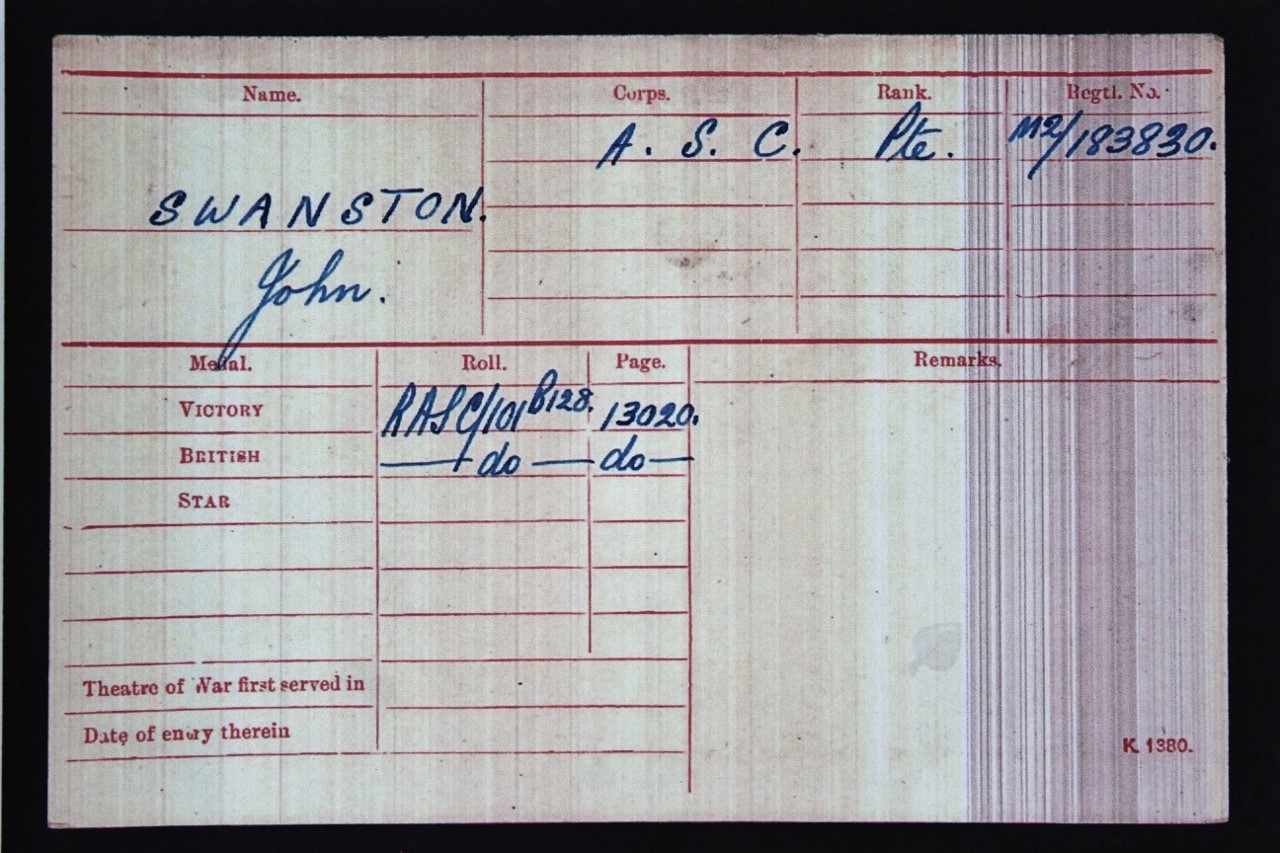 Name. Corps. Rank. Regtl. No.
A. S. C. Pte. M2/183830.
SWANSTON.
John.
Medal. Roll. Page. Remarks.
VICTORY RASC/101 B128. 13020.
BRITISH — do — do —
STAR
Theatre of War first served in
Date of entry therein
K. 1380.